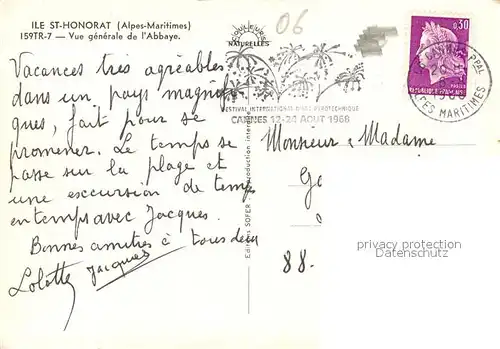 ILE ST-HONORAT (Alpes-Maritimes)
159TR-7 — Vue générale de l'Abbaye.
COULEURS
NATURELLES
06
0,30
POSTES
REPUBLIQUE FRANÇAISE
CANNES PPAL
ALPES MARITIMES
FESTIVAL INTERNATIONAL D'ART PYROTECHNIQUE
CANNES 12-24 AOUT 1968
Vacances très agréables
dans un pays magnifi-
ques, fait pour se
promener. Le temps se
passe sur la plage et
une excursion de temps
en temps avec Jacques.
Bonnes amitiés à tous deux
Lolotte Jacques
Editions SOFER
Reproduction interdite
Monsieur & Madame
88.
privacy protection
Datenschutz